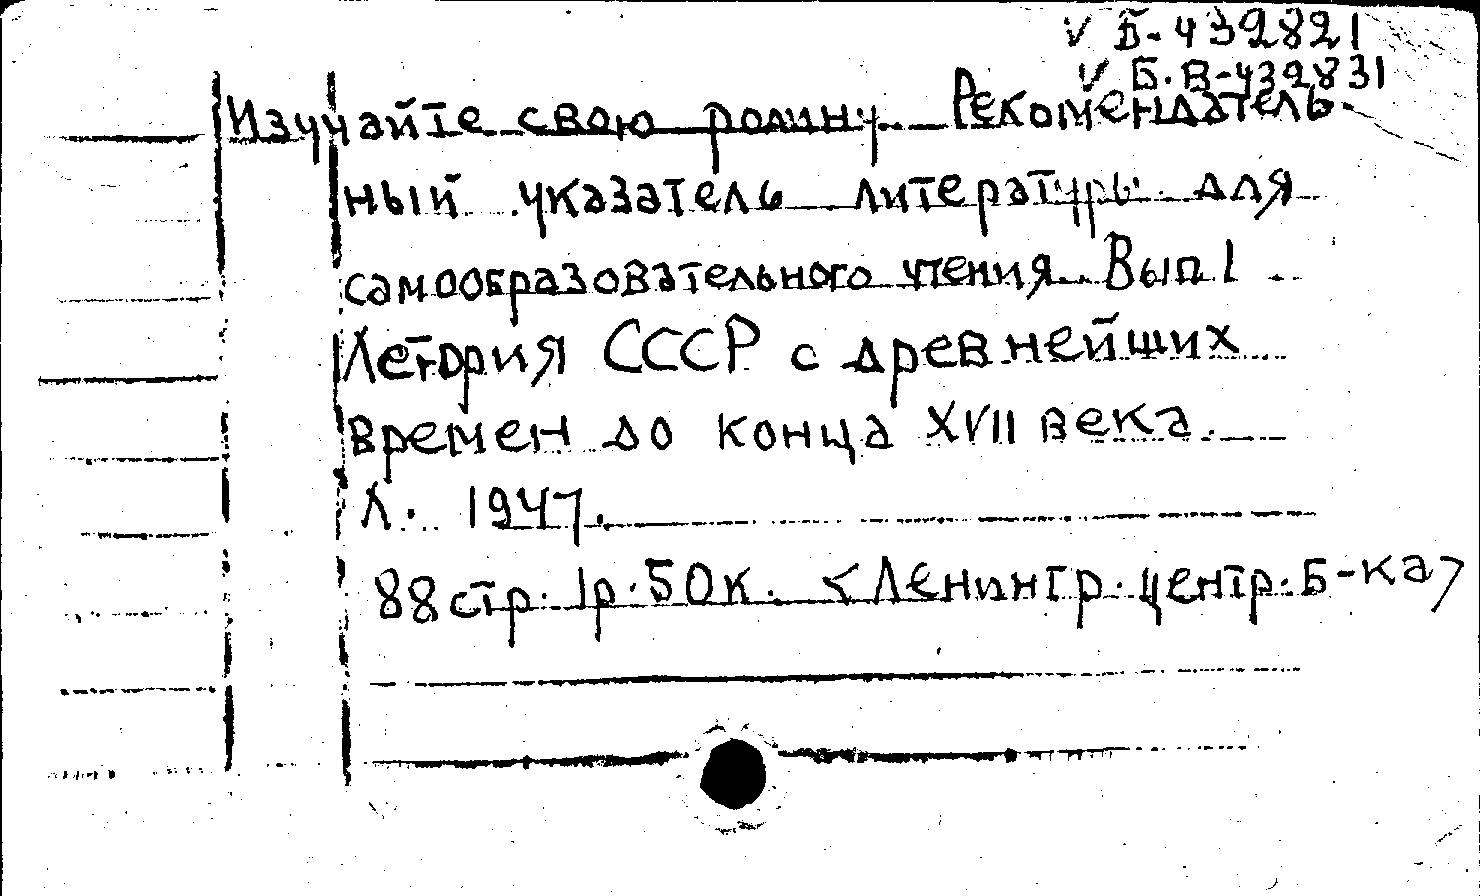 V Б-432821
V Б.В-432831
Изучайте свою родину. Рекомендатель-
ный указатель литературы для
самообразовательного чтения. Вып 1.
История СССР с древнейших
времен до конца XVII века.
Л. 1947.
88 стр. 1р.50к. <Ленингр. центр. б-ка>